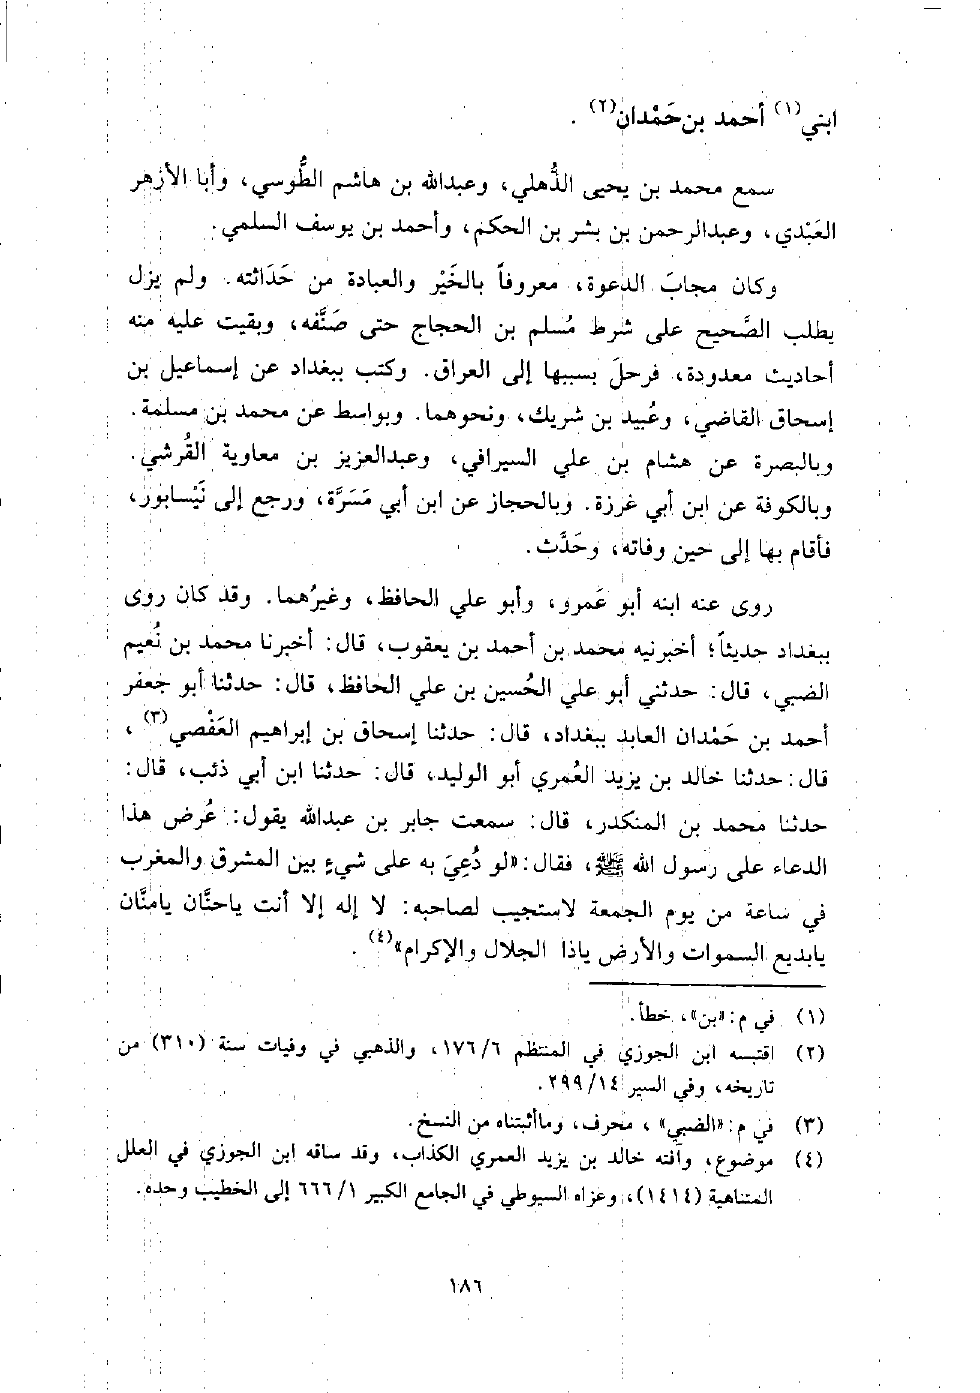 ابني(١) أحمد بن حَمْدان(٢) .
سمع محمد بن يحيى الذُّهلي، وعبدالله بن هاشم الطُّوسي، وأبا الأزهر
العَبْدي، وعبدالرحمن بن بشر بن الحكم، وأحمد بن يوسف السلمي.
وكان مجابَ الدعوة، معروفاً بالخَيْر والعبادة من حَدَاثته. ولم يزل
يطلب الصَّحيح على شرط مُسلم بن الحجاج حتى صَنَّفه، وبقيت عليه منه
أحاديث معدودة، فرحلَ بسببها إلى العراق. وكتب ببغداد عن إسماعيل بن
إسحاق القاضي، وعُبيد بن شريك، ونحوهما. وبواسط عن محمد بن مسلمة.
وبالبصرة عن هشام بن علي السيرافي، وعبدالعزيز بن معاوية القُرشي.
وبالكوفة عن ابن أبي غرزة. وبالحجاز عن ابن أبي مَسَرَّة، ورجع إلى نَيْسابور،
فأقام بها إلى حين وفاته، وحَدَّث.
روى عنه ابنه أبو عَمرو، وأبو علي الحافظ، وغيرُهما. وقد كان روى
ببغداد حديثاً؛ أخبرنيه محمد بن أحمد بن يعقوب، قال: أخبرنا محمد بن نُعيم
الضبي، قال: حدثني أبو علي الحُسين بن علي الحافظ، قال: حدثنا أبو جعفر
أحمد بن حَمْدان العابد ببغداد، قال: حدثنا إسحاق بن إبراهيم العَفْصي(٣) ،
قال: حدثنا خالد بن يزيد العُمري أبو الوليد، قال: حدثنا ابن أبي ذئب، قال:
حدثنا محمد بن المنكدر، قال: سمعت جابر بن عبدالله يقول: عُرض هذا
الدعاء على رسول الله ﷺ، فقال: «لو دُعِيَ به على شيءٍ بين المشرق والمغرب
في ساعة من يوم الجمعة لاستجيب لصاحبه: لا إله إلا أنت ياحنَّان يامنَّان
يابديع السموات والأرض ياذا الجلال والإكرام»(٤) .
(١) في م: «بن»، خطأ.
(٢) اقتبسه ابن الجوزي في المنتظم ٦/ ١٧٦، والذهبي في وفيات سنة (٣١٠) من
تاريخه، وفي السير ١٤/ ٢٩٩.
(٣) في م: «الضبي» ، محرف، وماأثبتناه من النسخ.
(٤) موضوع، وآفته خالد بن يزيد العمري الكذاب، وقد ساقه ابن الجوزي في العلل
المتناهية (١٤١٤)، وعزاه السيوطي في الجامع الكبير ١/ ٦٦٦ إلى الخطيب وحده.
١٨٦